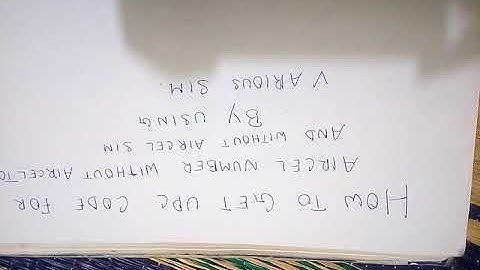 HOW TO GET UPC CODE FOR
AIRCEL NUMBER WITHOUT AIRCEL TO
AND WITHOUT AIRCEL SIM
BY USING
VARIOUS SIM.